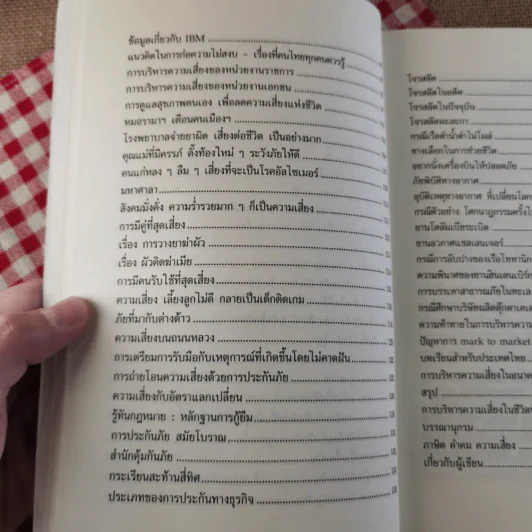 ข้อมูลเกี่ยวกับ IBM
แนวคิดในการก่อความไม่สงบ – เรื่องที่คนไทยทุกคนควรรู้
การบริหารความเสี่ยงของหน่วยงานราชการ
การบริหารความเสี่ยงของหน่วยงานเอกชน
การดูแลสุขภาพตนเอง เพื่อลดความเสี่ยงแห่งชีวิต
หมอรามาฯ เตือนคนเมืองฯ
โรงพยาบาลจ่ายยาผิด เสี่ยงต่อชีวิต เป็นอย่างมาก
คุณแม่ที่มีครรภ์ ตั้งท้องใหม่ ๆ ระวังภัยให้ดี
คนแก่หลง ๆ ลืม ๆ เสี่ยงที่จะเป็นโรคอัลไซเมอร์
มหาศาลา
สังคมมั่งคั่ง ความร่ำรวยมาก ๆ ก็เป็นความเสี่ยง
การมีคู่ที่สุดเสี่ยง
เรื่อง การวางยาฆ่าผัว
เรื่อง ผัวคิดฆ่าเมีย
การมีคนรับใช้ที่สุดเสี่ยง
ความเสี่ยง เลี้ยงลูกไม่ดี กลายเป็นเด็กติดเกม
ภัยที่มากับต่างด้าว
ความเสี่ยงบนถนนหลวง
การเตรียมการรับมือกับเหตุการณ์ที่เกิดขึ้นโดยไม่คาดฝัน
การถ่ายโอนความเสี่ยงด้วยการประกันภัย
ความเสี่ยงกับอัตราแลกเปลี่ยน
รู้ทันกฎหมาย : หลักฐานการกู้ยืม
การประกันภัย สมัยโบราณ
สำนักคุ้มกันภัย
กระเรียนสะท้านสี่ทิศ
ประเภทของการประกันทางธุรกิจ
โจรสลัด
โจรสลัดในอดีต
โจรสลัดในปัจจุบัน
โจรสลัดมะละกา
กรณีเรือดำน้ำดำไม่โผล่
ทางเลือกในการช่วยชีวิต
อยากนั่งเครื่องบินให้ปลอดภัย
ภัยพิบัติทางอากาศ
อุบัติเหตุทางอากาศ ที่เปลี่ยนโลก
กรณีตัวอย่าง โศกนาฏกรรมครั้งใ
ยานโคลัมเบียระเบิด
ยานอวกาศแชลเลนเจอร์
กรณีการอับปางของเรือไททานิก
ความพินาศของยานฮินเดนเบิร์ก
การบรรเทาสาธารณภัยในทะเล
กรณีศึกษาบริษัทผลิตตุ๊กตาเคเด
ความท้าทายในการบริหารความ
ปัญหาการ mark to market
บทเรียนสำหรับประเทศไทย
การบริหารความเสี่ยงในอนาค
สรุป
การบริหารความเสี่ยงในชีวิต
บรรณานุกรม
ภาษิต คำคม ความเสี่ยง
เกี่ยวกับผู้เขียน